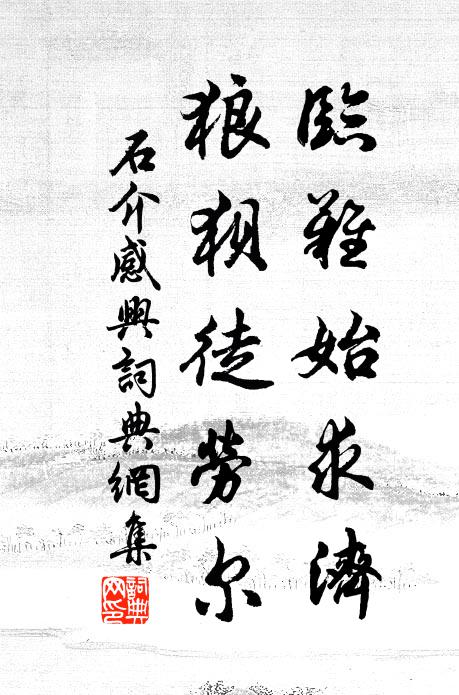 臨難始求濟
狼狽徒勞尔
石介感興詞典網集
詞典